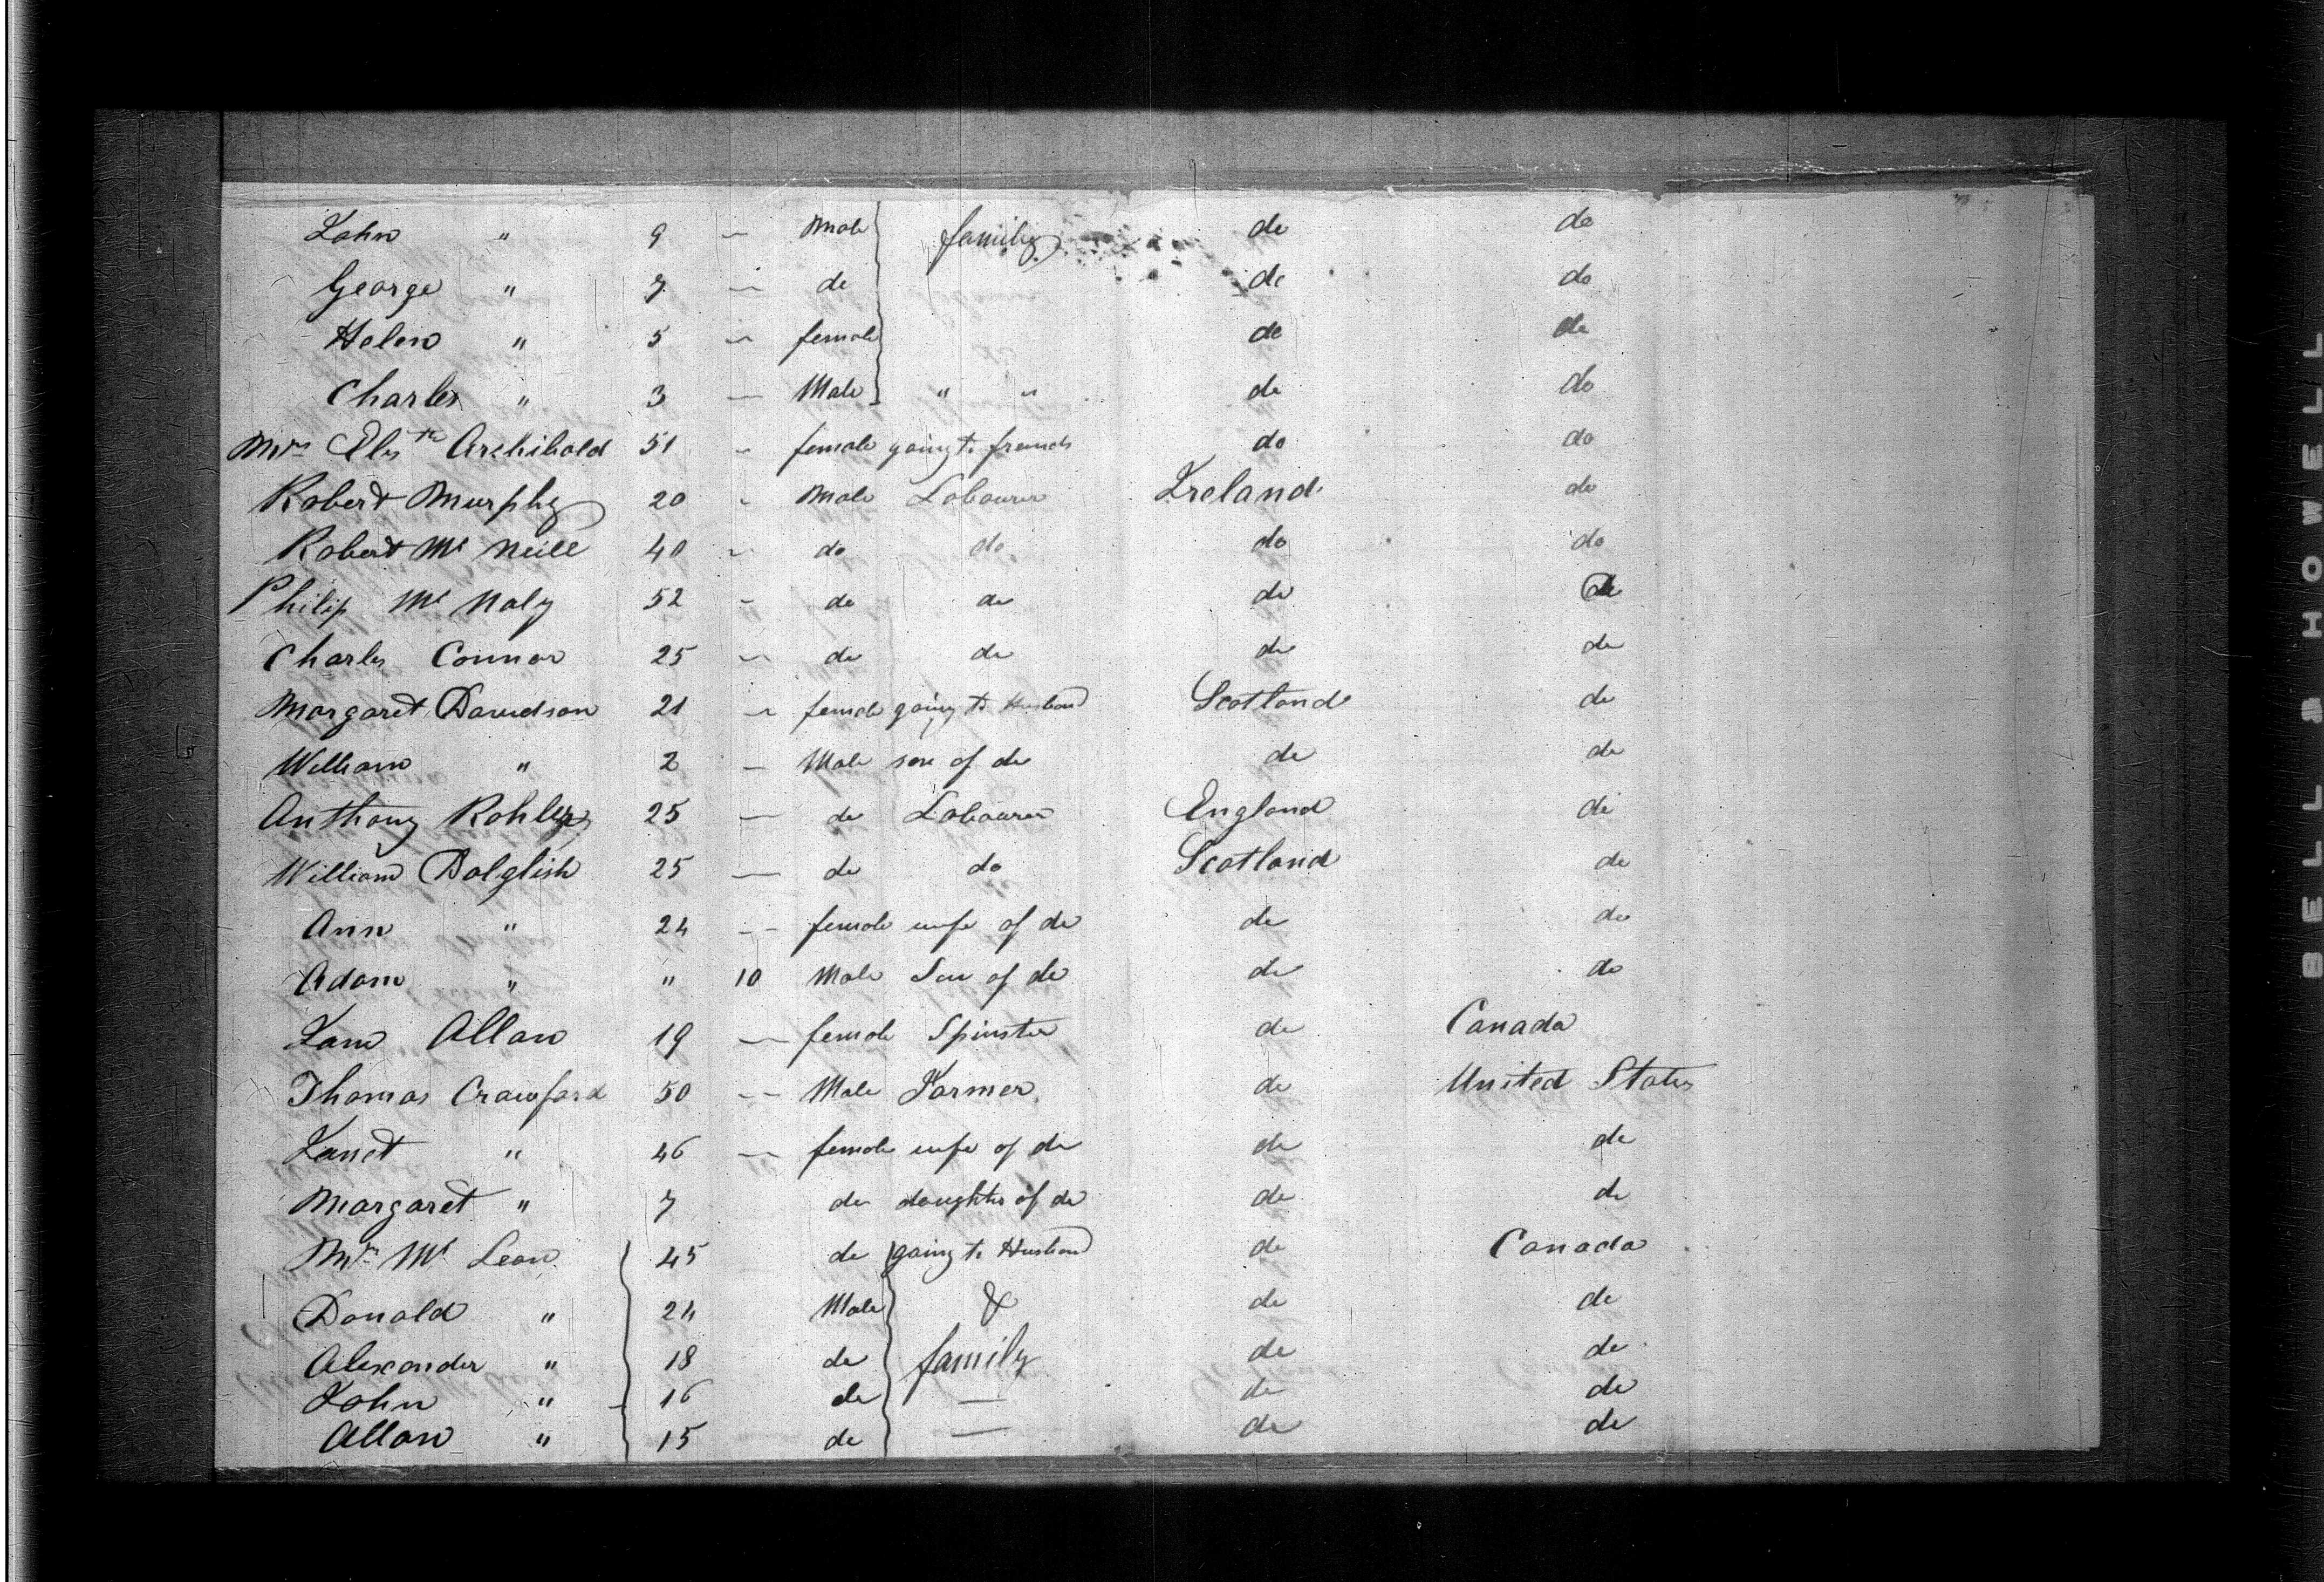 John " 9 – Male family do do
George " 7 – do do do
Helen " 5 – female do do
Charles " 3 – Male " " do do
Mrs Elizth Archibald 51 – female going to freinds do do
Robert Murphy 20 – Male Labourer Ireland do
Robert Mc Neill 40 – do do do do
Philip Mc Naly 52 – do do do do
Charles Connor 25 – do do do do
Margaret Davidson 21 – female going to Husband Scotland do
William " 2 – Male son of do do do
Anthony 25 – do Labourer England do
William Dalglish 25 – do do Scotland do
Ann " 24 – female wife of do do do
Adam " " 10 Male Son of do do do
Jane Allan 19 – female Spinster do Canada
Thomas Crawford 50 – Male Farmer do United States
Janet " 46 – female wife of do do do
Margaret " 7 do daughter of do do do
Mrs Mc Lean 45 do going to Husband do Canada
Donald " 24 Male & do do
Alexander " 18 do family do do
John " 16 do – do do
Allan " 15 do – do do
BELL & HOWELL